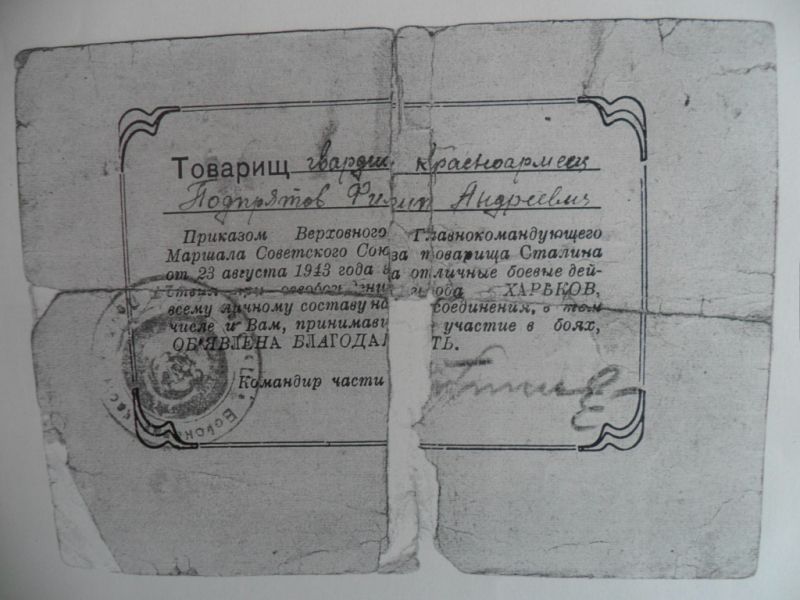 Товарищ гвардии красноармеец
Подпрятов Филип Андреевич
Приказом Верховного Главнокомандующего
Маршала Советского Союза товарища Сталина
от 23 августа 1943 года за отличные боевые дей-
ствия при города ХАРЬКОВ,
всему личному составу на соединения, в том
числе и Вам, принимавш участие в боях,
ОБ'ЯВЛЕНА БЛАГОДА ТЬ.
Командир части